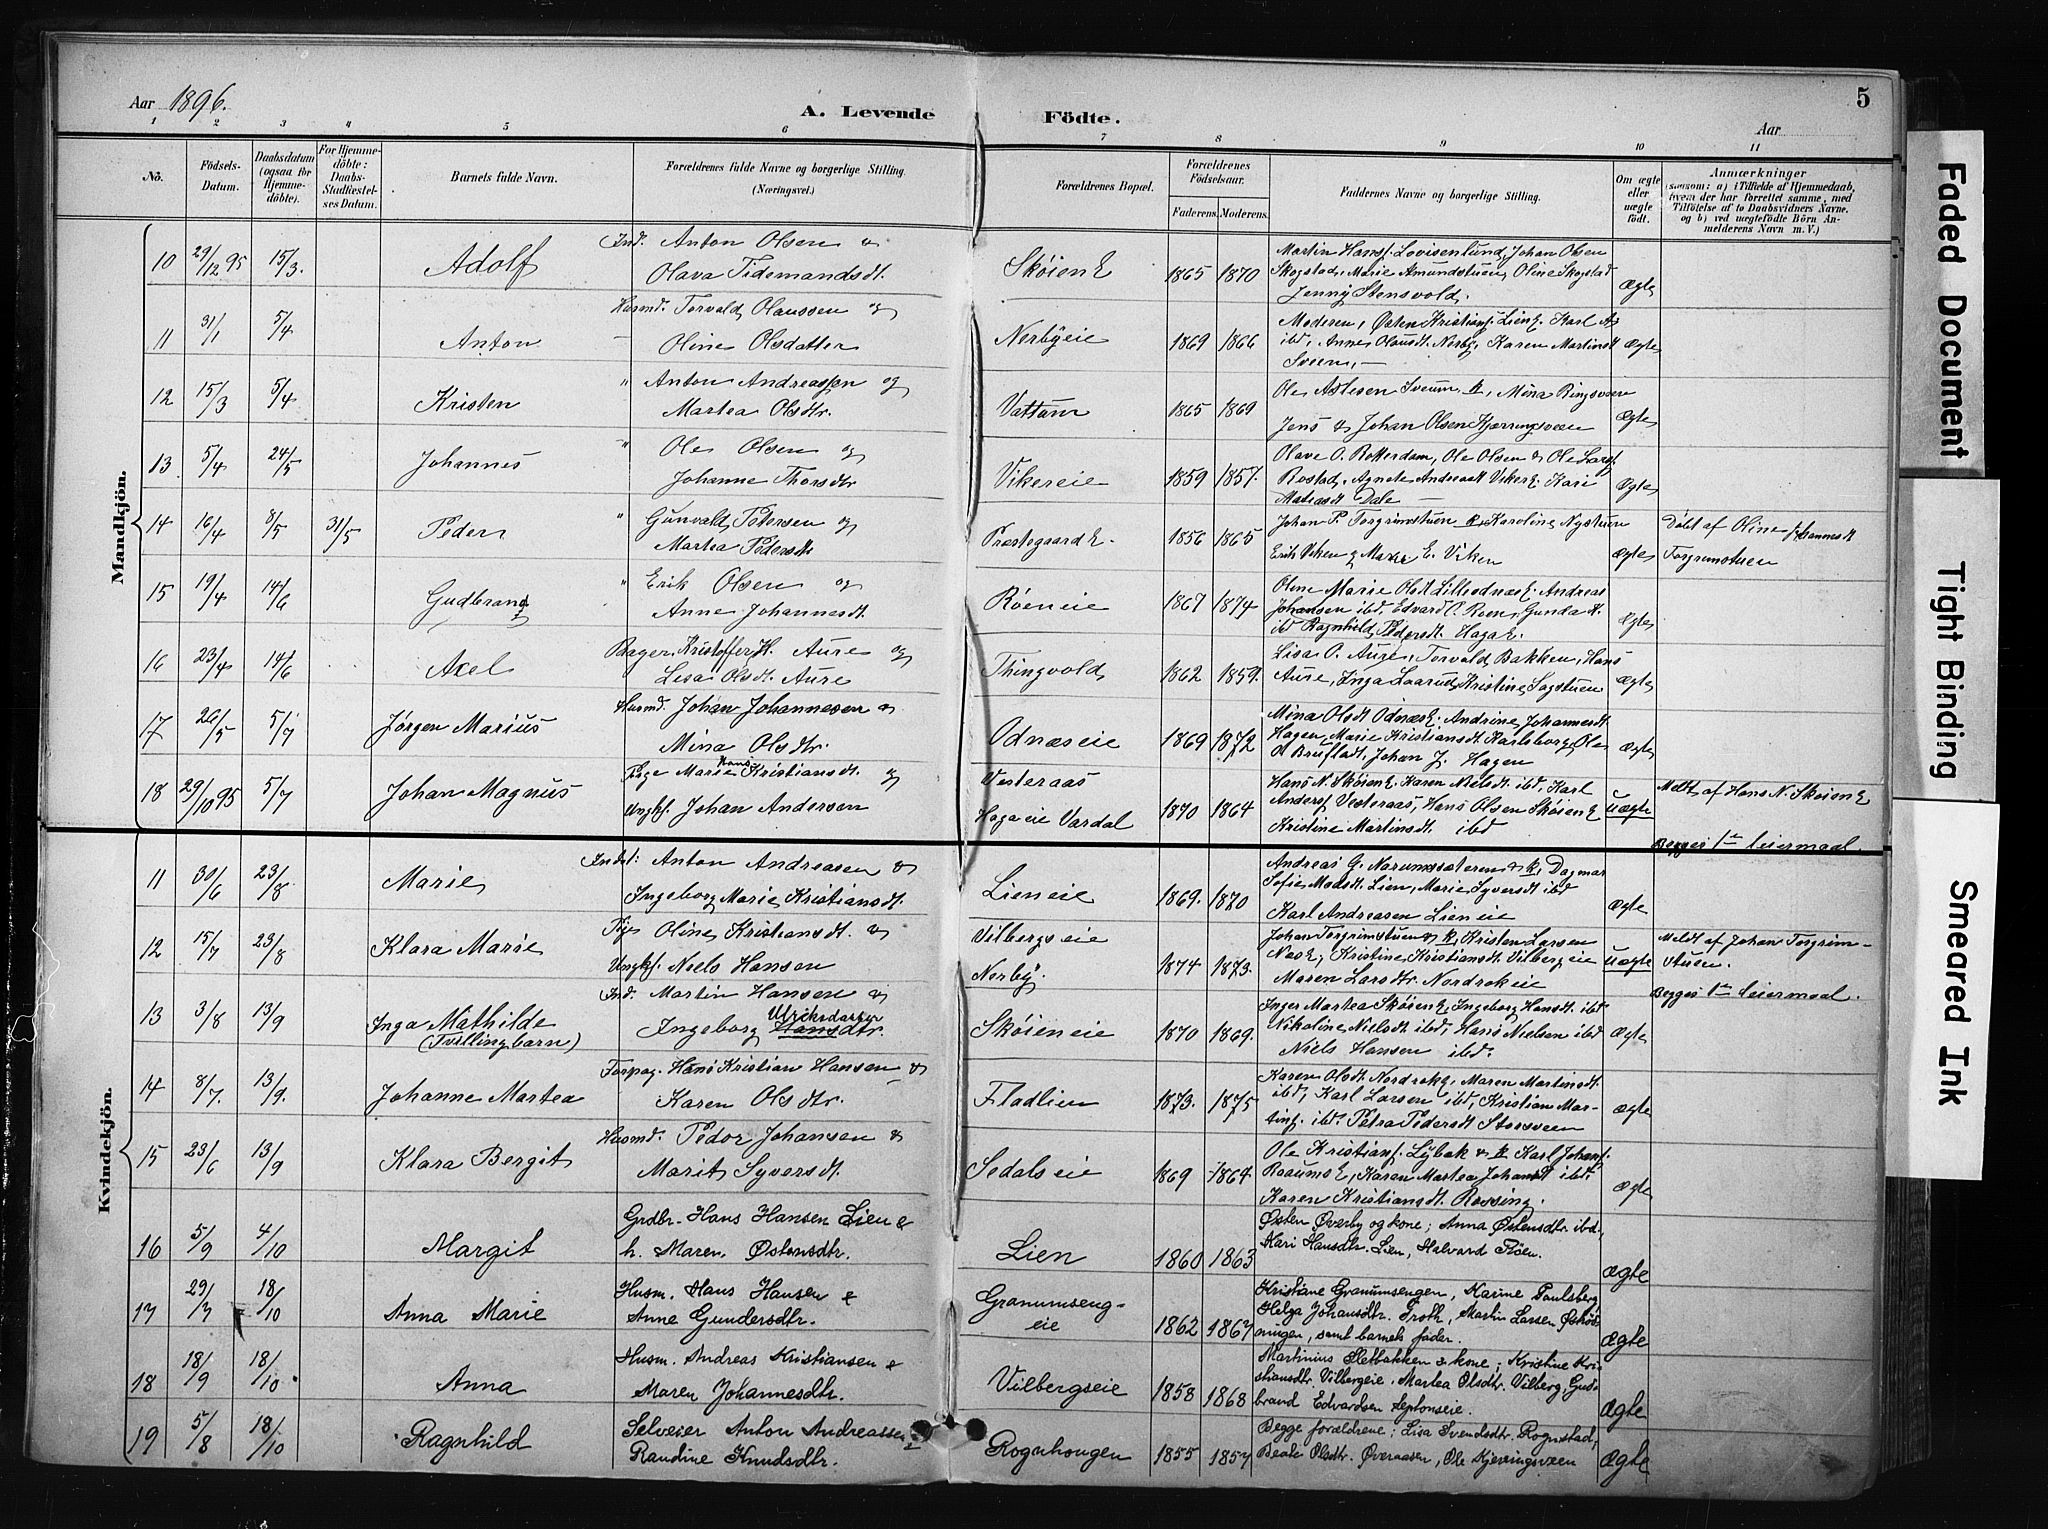 Aar 1896.
A. Levende
Födte.
5
Aar
1 2 3 4 5 6 7 8 9 10 11
No. Födsels-Datum. Daabsdatum (ogsaa for Hjemmedöbte). For Hjemmedöbte: Daabs-Stadfæstelses Datum. Barnets fulde Navn. Forældrenes fulde Navne og borgerlige Stilling. (Næringsvei.) Forældrenes Bopæl. Forældrenes Födselsaar. Faderens. Moderens. Faddernes Navne og borgerlige Stilling. Om ægte eller uægte födt. Anmærkninger (saasom: a) i Tilfælde af Hjemmedaab, hvem der har forrettet samme, med Tilföielse af to Daabsvidners Navne. og b) ved uægtefödte Börn Anmelderens Navn m. V.)
Mandkjön.
10 29/12 95 15/3. Adolf Ind. Anton Olsen &
Olava Tidemandsdt. Skøien E 1865 1870 Martin Hansf. Lovisenlund, Johan Olsen
Skogstad, Marie Amundstuen, Oline Skogstad
Jenny Stensvold. Ægte
11 31/1 5/4 Anton Husmd. Torvald Olaussen og
Oline Olsdatter Nerbyeie 1869 1866 Moderen, Østen Kristiansf. Lien E. Karl A.
ibd, Anne Olausdt. Nerby, Karen Martinsdt
Sveen. Ægte
12 15/3 5/4 Kristen " Anton Andreassen og
Martea Olsdtr. Vattum 1865 1869 Ole Axlesen Sveum k, Mina Ringsveen
Jens & Johan Olsen Kjerringsveen Ægte
13 5/4 24/5 Johannes " Ole Olsen og
Johanne Thorsdtr Vikereie 1859 1857. Olave O. Rotterdam, Ole Olsen & Ole Larsf.
Rostad, Agnete Andreasdt Viker E. Kari
Matiasdt Dale Ægte
14 16/4 8/5 31/5 Peder " Gunvald Petersen og
Martea Pedersdt Præstegaard E. 1856 1865 Johan P. Torgrimstuen & Karoline Nystuen
Erik Viken & Marie E. Viken Ægte Døbt af Oline Johannesdt
Torgrimstuen
15 19/4 14/6 Gudbrand " Erik Olsen og
Anne Johannesdt Røeneie 1867 1874 Oline Marie Olsdt Lilleodnæs E. Andreas
Johansen ibd, Edvard O. Roen, Gunda A.
ibd Ragnhild Pedersdt. Haga E. Ægte
16 23/4 14/6 Axel Bager Kristoffer H. Aure og
Lisa Olsdt. Aure Thingvold 1862 1859. Lisa O. Aure, Torvald Bakken, Hans
Aure, Inga Laarud, Kristine Sagstuen Ægte
17 26/5 5/7 Jørgen Marius Husmd. Johan Johannesen &
Mina Olsdtr. Odnæseie 1869 1872 Mina Olsdt Odnæs E. Andrine Johannesdt
Hagen, Marie Kristiansdt Karlsborg, Ole
A Bruflat, Johan J. Hagen Ægte
18 29/10 95 5/7 Johan Magnus Pige Marie Hans Kristiansdt. og
Ungkf. Johan Andersen Vesteraas
Haga eie Vardal 1870 1864 Hans N. Skøien E. Karen Nielsdt ibd, Karl
Andersf Vesteraas, Hans Olsen Skøien E
Kristine Martinsdt. ibd Uægte Meldt af Hans N. Skøien E
Begges 1te leiermaal.
Kvindekjön.
11 30/6 23/8 Marie Indst: Anton Andreasen &
Ingeborg Marie Kristiansdt. Lieneie 1869. 1870 Andreas G. Narumssæteren & k, Dagmar
Sofie Madsdt. Lien, Marie Syversdt ibd
Karl Andreasen Lieneie Ægte
12 15/7 23/8 Klara Marie Pige Oline Kristiansdt. &
Ungkf. Niels Hansen Vilbergseie
Nerby. 1874 1873. Johan Torgrimstuen & k, Kristen Larsen
Næs E, Kristine Kristiansdt. Vilbergeie
Maren Larsdtr. Nordrokeie Uægte Meldt af Johan Torgrim-
stuen.
Begges 1te leiermaal.
13 3/8 13/9 Inga Mathilde
(Tvillingbarn) Ind. Martin Hansen &
Ulriksdatter
Ingeborg Hansdtr. Skøieneie 1870 1869. Inger Martea Skøien E, Ingeborg Hansdt. ibd
Nikoline Nielsdt ibd, Hans Nielsen ibd
Niels Hansen ibd. Ægte
14 8/7. 13/9. Johanne Martea Forpag. Hans Kristian Hansen &
Karen Olsdtr. Fladlien 1873. 1875 Karen Olsdt Nordrok E, Maren Martinsdt.
ibd, Karl Larsen ibd, Kristian Mar-
tinsf. ibd. Petra Pedersdt Storsveen Ægte
15 23/6 13/9 Klara Bergit Husmd. Peder Johansen &
Marit Syversdt. Sedalseie 1869 1864 Ole Kristiansf. Lybæk & k Karl Johansf.
Raaums E, Karen Martea Johansdt ibd.
Karen Kristiansdt. Røssing. Ægte
16 5/9 4/10 Margit Grdbr. Hans Hansen Lien &
h. Maren Østensdtr. Lien 1860 1863 Østen Øverby og kone; Anna Østensdtr. ibd.,
Mari Hansdtr. Lien, Halvard Fløen. Ægte
17 29/7 18/10 Anna Marie Husm. Hans Hansen &
Anne Gundersdtr. Granumseng-
eie 1862 1867 Kristiane Granumsengen, Karine Paulsberg,
Helga Johansdtr. Troth, Martin Larsen Østød-
ningen, samt barnets fader. Ægte
18 18/9 18/10 Anna Husm. Andreas Kristiansen &
Maren Johannesdtr. Vilbergseie 1858 1868 Martinius Sletbakken & kone; Kristine Kri-
stiansdtr. Vilbergeie, Martea Olsdtr. Vilberg, Gud-
brand Edvardsen Leptonseie. Ægte
19 5/8 18/10 Ragnhild Selveier Anton Andreassen &
Randine Knudsdtr. Rognhougen 1855 1857 Begge forældrene; Lisa Svendsdtr. Rognstad,
Beate Olsdtr. Øveraasen, Ole Kjerringsveen Ægte
Faded Document
Tight Binding
Smeared Ink